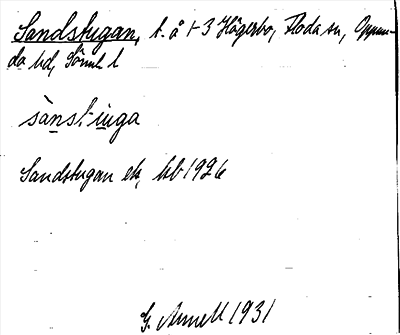 Sandstugan, t. å 1-3 Hägerbo, Floda sn, Oppun-
da hd, Sörml l
sànst-ùga
Sandstugan ek, hb 1926
G. Annell 1931